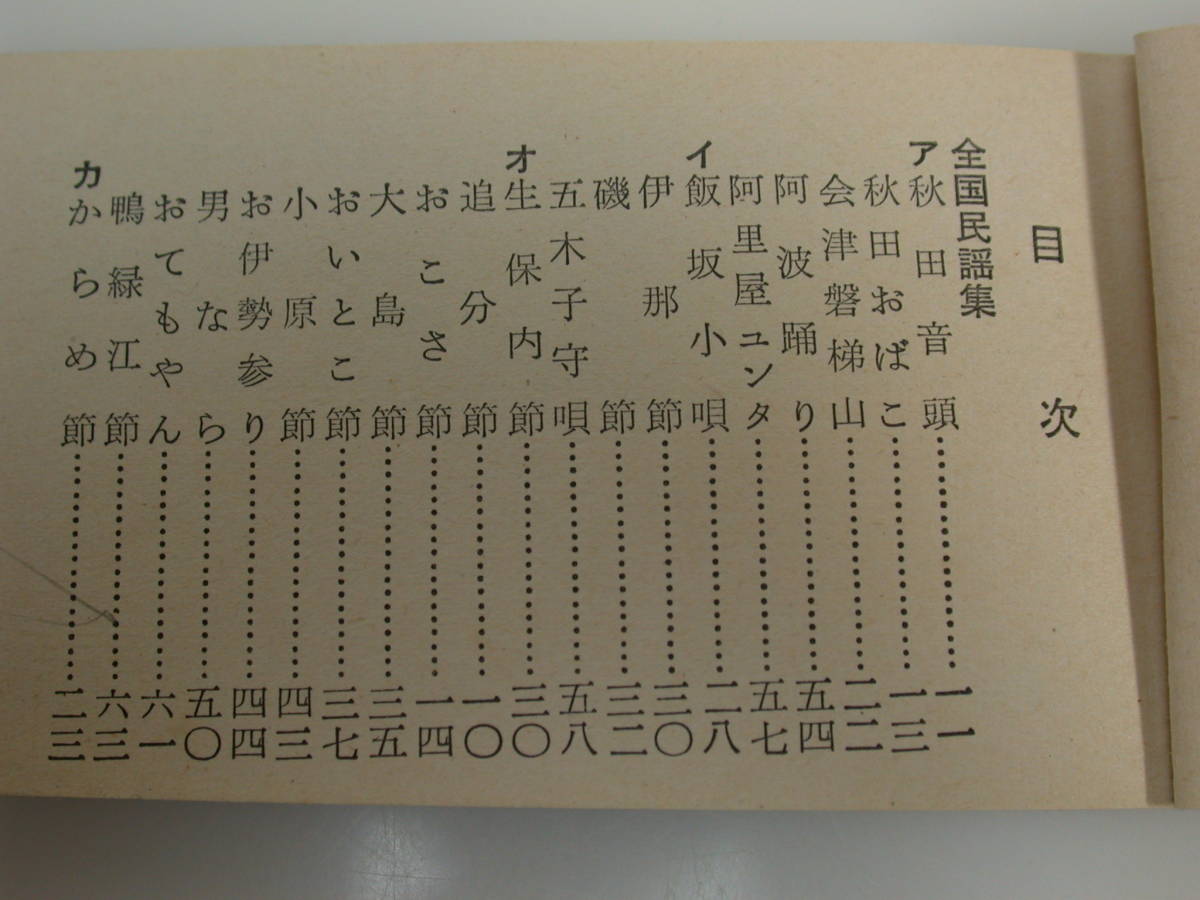 目次
全国民謡集
ア 秋田音頭……………………一一
秋田おばこ……………………一三
会津磐梯山……………………二二
阿波踊り……………………五四
阿里屋ユンタ……………………五七
イ 飯坂小唄……………………二八
伊那節……………………三〇
磯節……………………三二
五木子守唄……………………五八
オ 生保内節……………………三〇
追分節……………………一〇
おこさ節……………………一四
大島節……………………三五
おいとこ節……………………三七
小原節……………………四三
お伊勢参り……………………四四
男なら……………………五〇
おてもやん……………………六一
鴨緑江節……………………六三
カ からめ節……………………二三